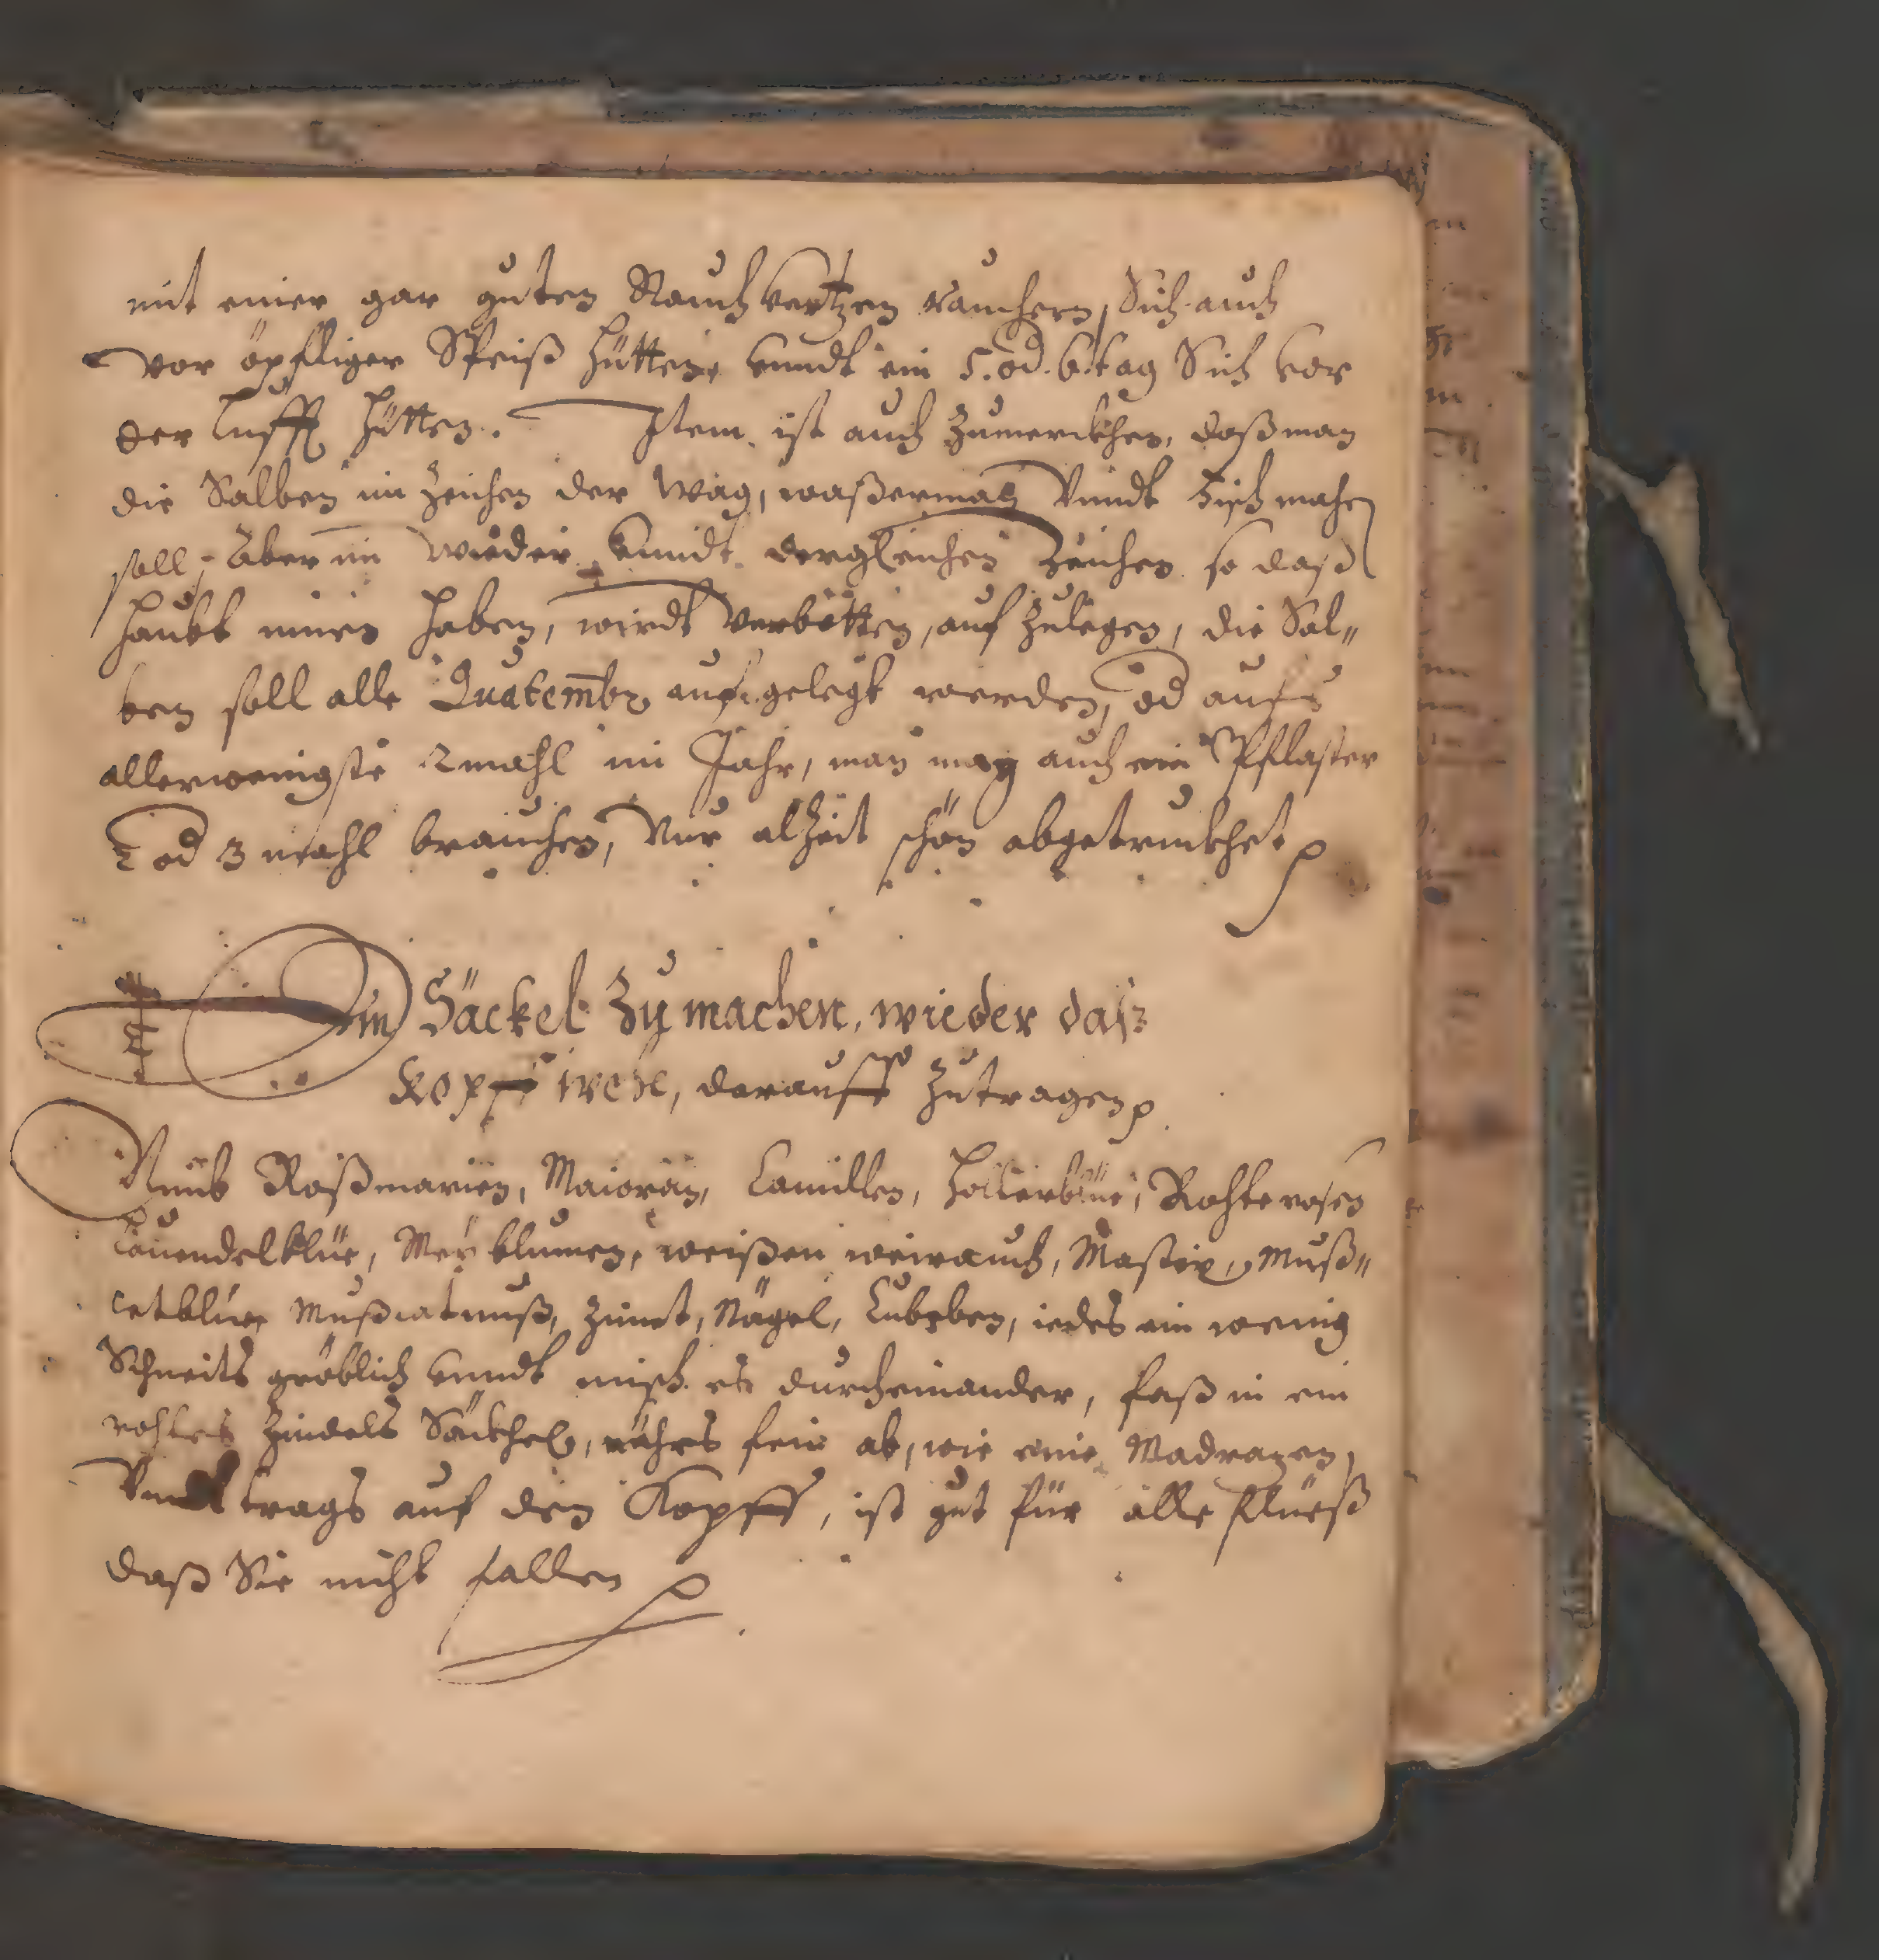 mit einer gar guten Rauchkertzen rauchern, Sich auch
vor öpffliger Speiß hütten, vnndt ein 5. od. 6. tag Sich vor
der lufft hütten. Item. ist auch zumerckhen, daß man
die Salben im Zeichen der Wag, waßerman Vnndt Fisch machen
soll, Aber im Wieder vnndt dergleichen Zeichen so daß
haubt innen haben, wirdt Verbotten, auf Zulegen, die Sal„
ben soll alle Quatemb aufgelegt werden, od aufs
allerwenigste 2 mahl im Jahr, man mag auch ein Pflaster
2 od 3 mahl brauchen, Nur alzeit schön abgetruckhet
Ein Säckel Zu machen, wieder daß
Kopff wehe, darauff Zutragen
Nimb Roßmarien, Maioran, Camillen, Hollerblüe, Rohte rosen
Lauendelblüe, Mey blumen, weißen weirauch, Mastix, Muß„
cetblüe, Mußcatnuß, Zimet, Nägel, Cubeben, iedes ein wenig
Schneits gröblich vnndt misch es durcheinander, faß in ein
rohtes Zindels Säckhel, nähes fein ab, wie eine Madrazen,
Vnndt trags auf den Kopff, ist gut für alle flüeß
daß Sie nicht fallen